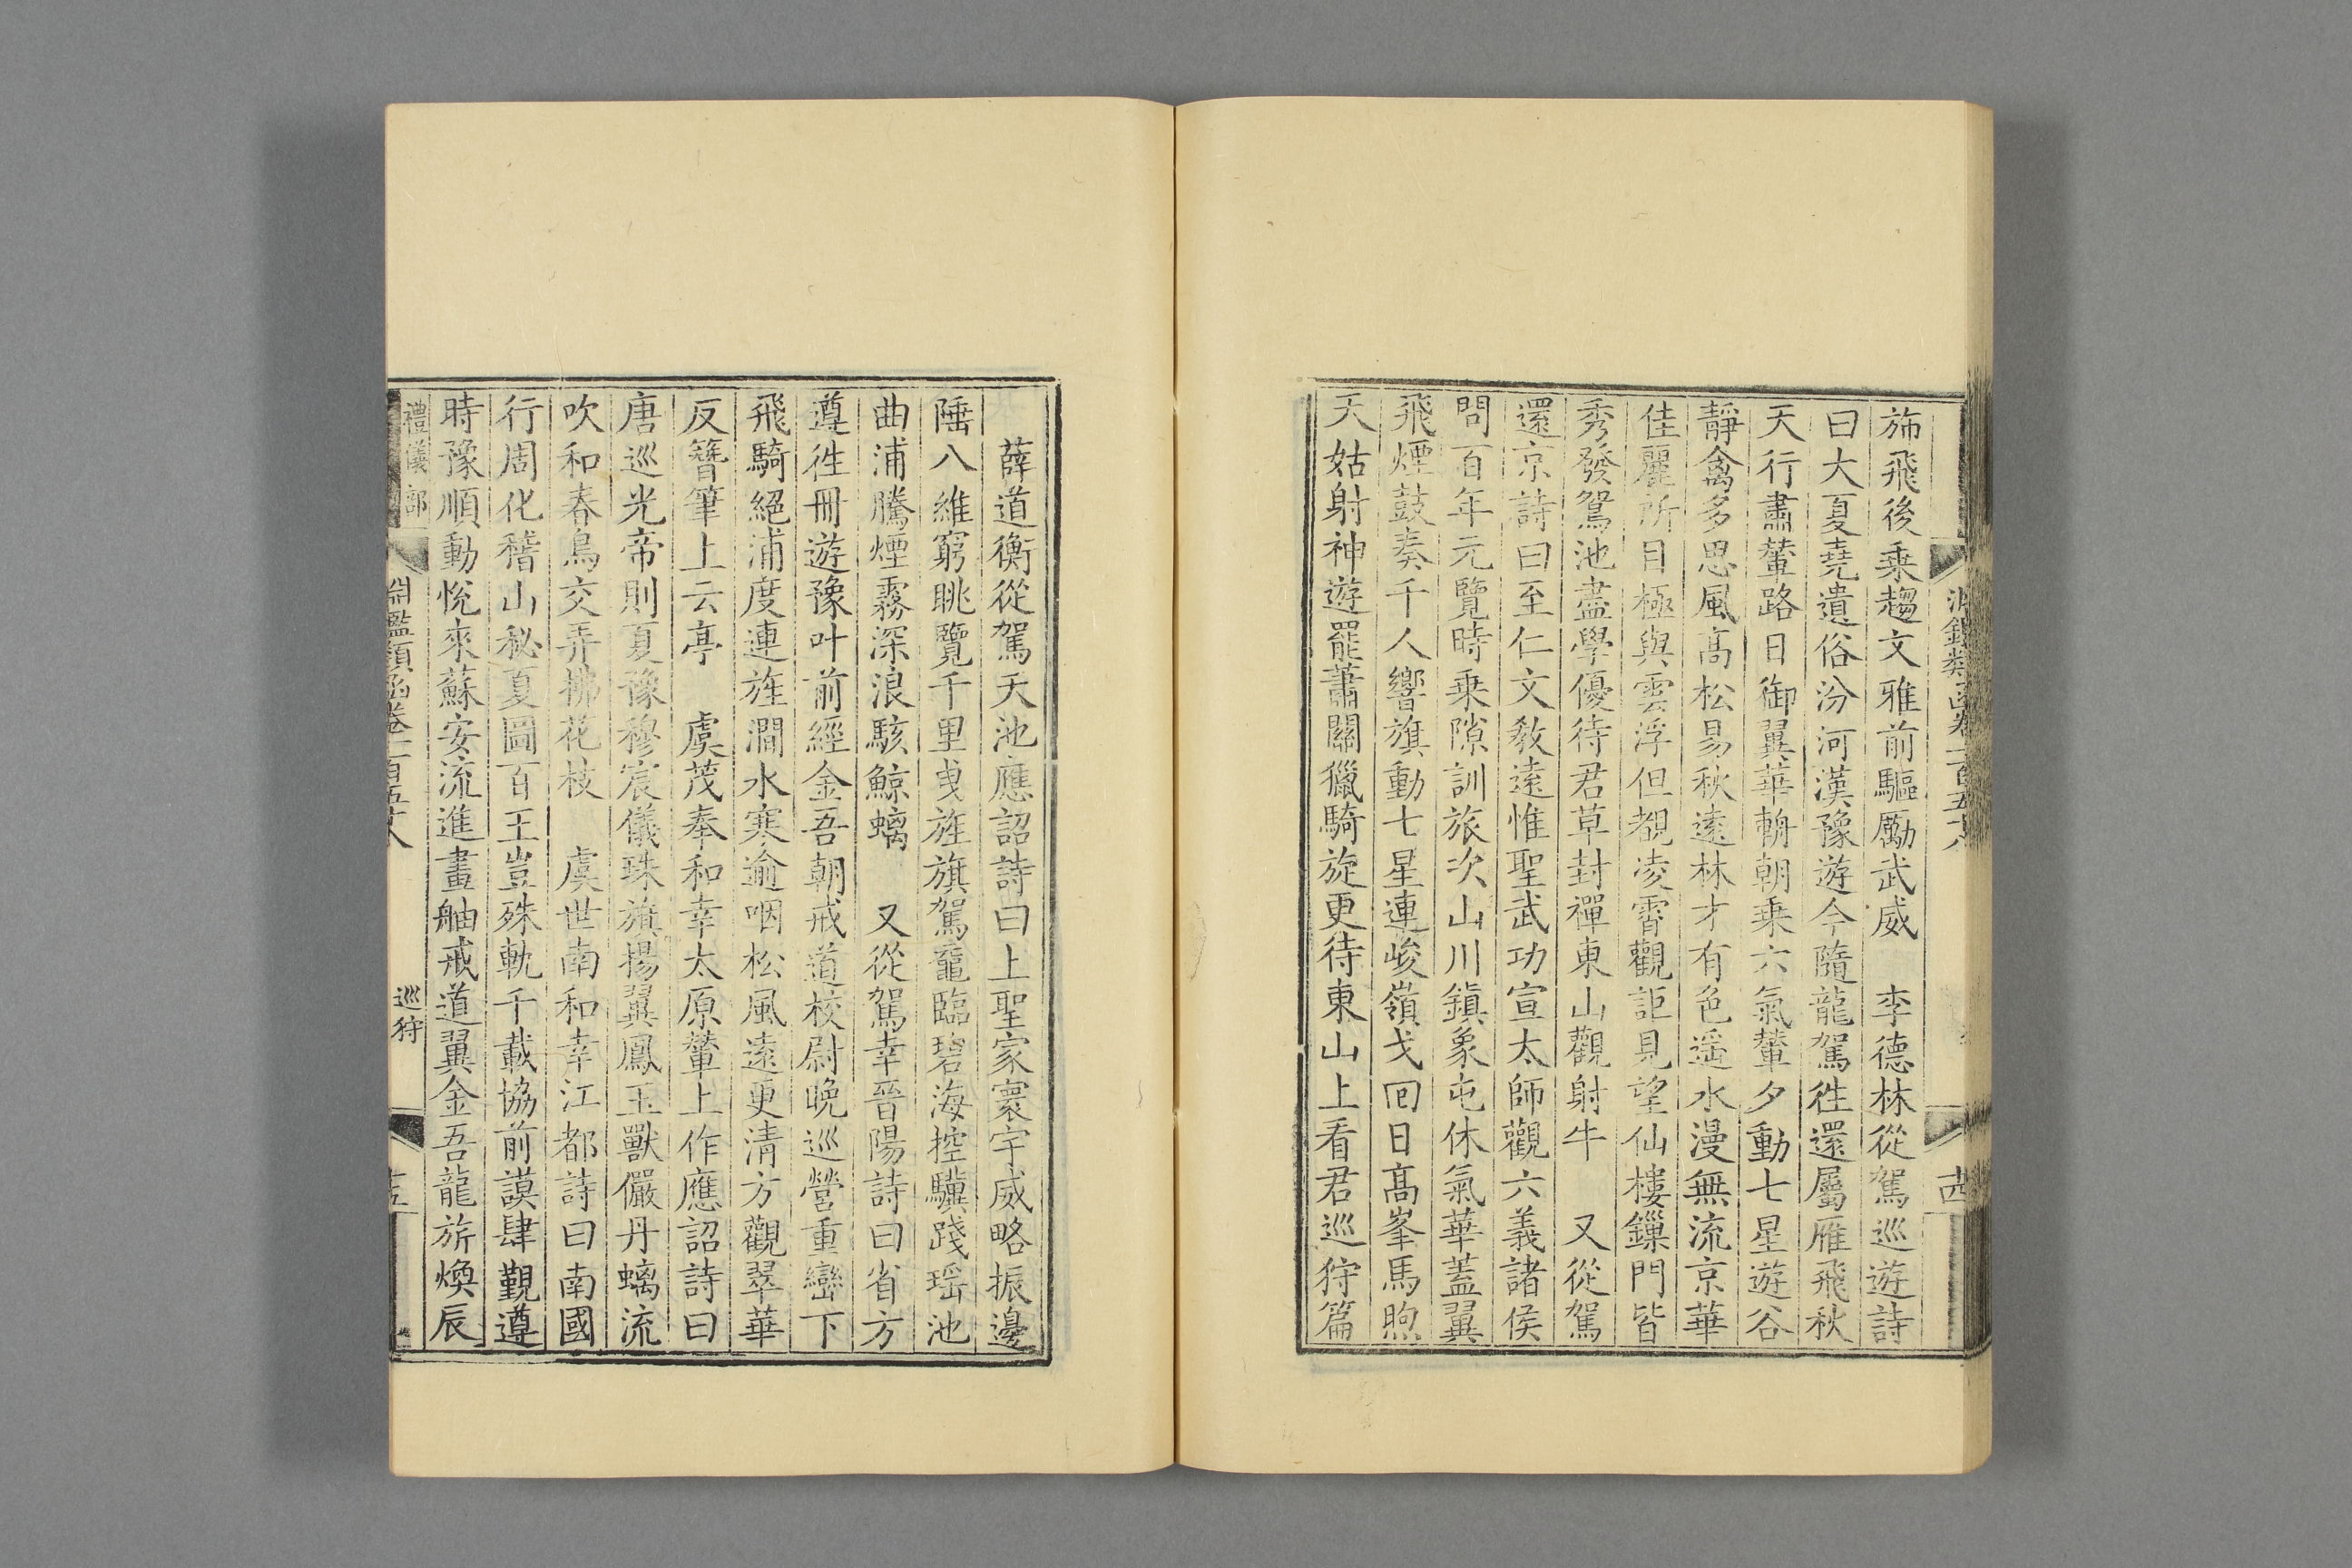 旆飛後乗趨文雅前驅勵武威　李德林從駕巡遊詩
曰大夏堯遺俗汾河漢豫遊今隨龍駕徃還屬雁飛秋
天行肅輦路日御翼華輈朝乗六氣輦夕動七星遊谷
靜禽多思風高松易秋遠林才有色遥水漫無流京華
佳麗所目極與雲浮但覩凌霄觀詎見望仙樓鏁門皆
秀發鴛池盡學優待君草封禪東山觀射牛　又從駕
還京詩曰至仁文敎遠惟聖武功宣太師觀六義諸侯
問百年元覽時乗隙訓旅次山川鎭象屯休氣華蓋翼
飛煙鼓奏千人響旗動七星連峻嶺戈囘日高峯馬煦
天姑射神遊罷蕭關獵騎旋更待東山上看君巡狩篇
十四
薛道衡從駕天池應詔詩曰上聖家寰宇威略振邊
陲八維窮眺覽千里曵旌旗駕黿臨碧海控驥踐瑶池
曲浦騰煙霧深浪駭鯨螭　又從駕幸晉陽詩曰省方
遵徃冊遊豫叶前經金吾朝戒道校尉晩巡營重巒下
飛騎絕浦度連旌澗水寒逾咽松風遠更清方觀翠華
反簪筆上云亭　虞茂奉和幸太原輦上作應詔詩曰
唐巡光帝則夏豫穆宸儀珠旗揚翼鳳玉獸儼丹螭流
吹和春鳥交弄拂花枝　虞世南和幸江都詩曰南國
行周化稽山秘夏圖百王豈殊軌千載協前謨肆覲遵
時豫順動悅來蘇安流進畫舳戒道翼金吾龍旂煥辰
禮儀部 淵鑑類函卷一百五十八 巡狩 十五